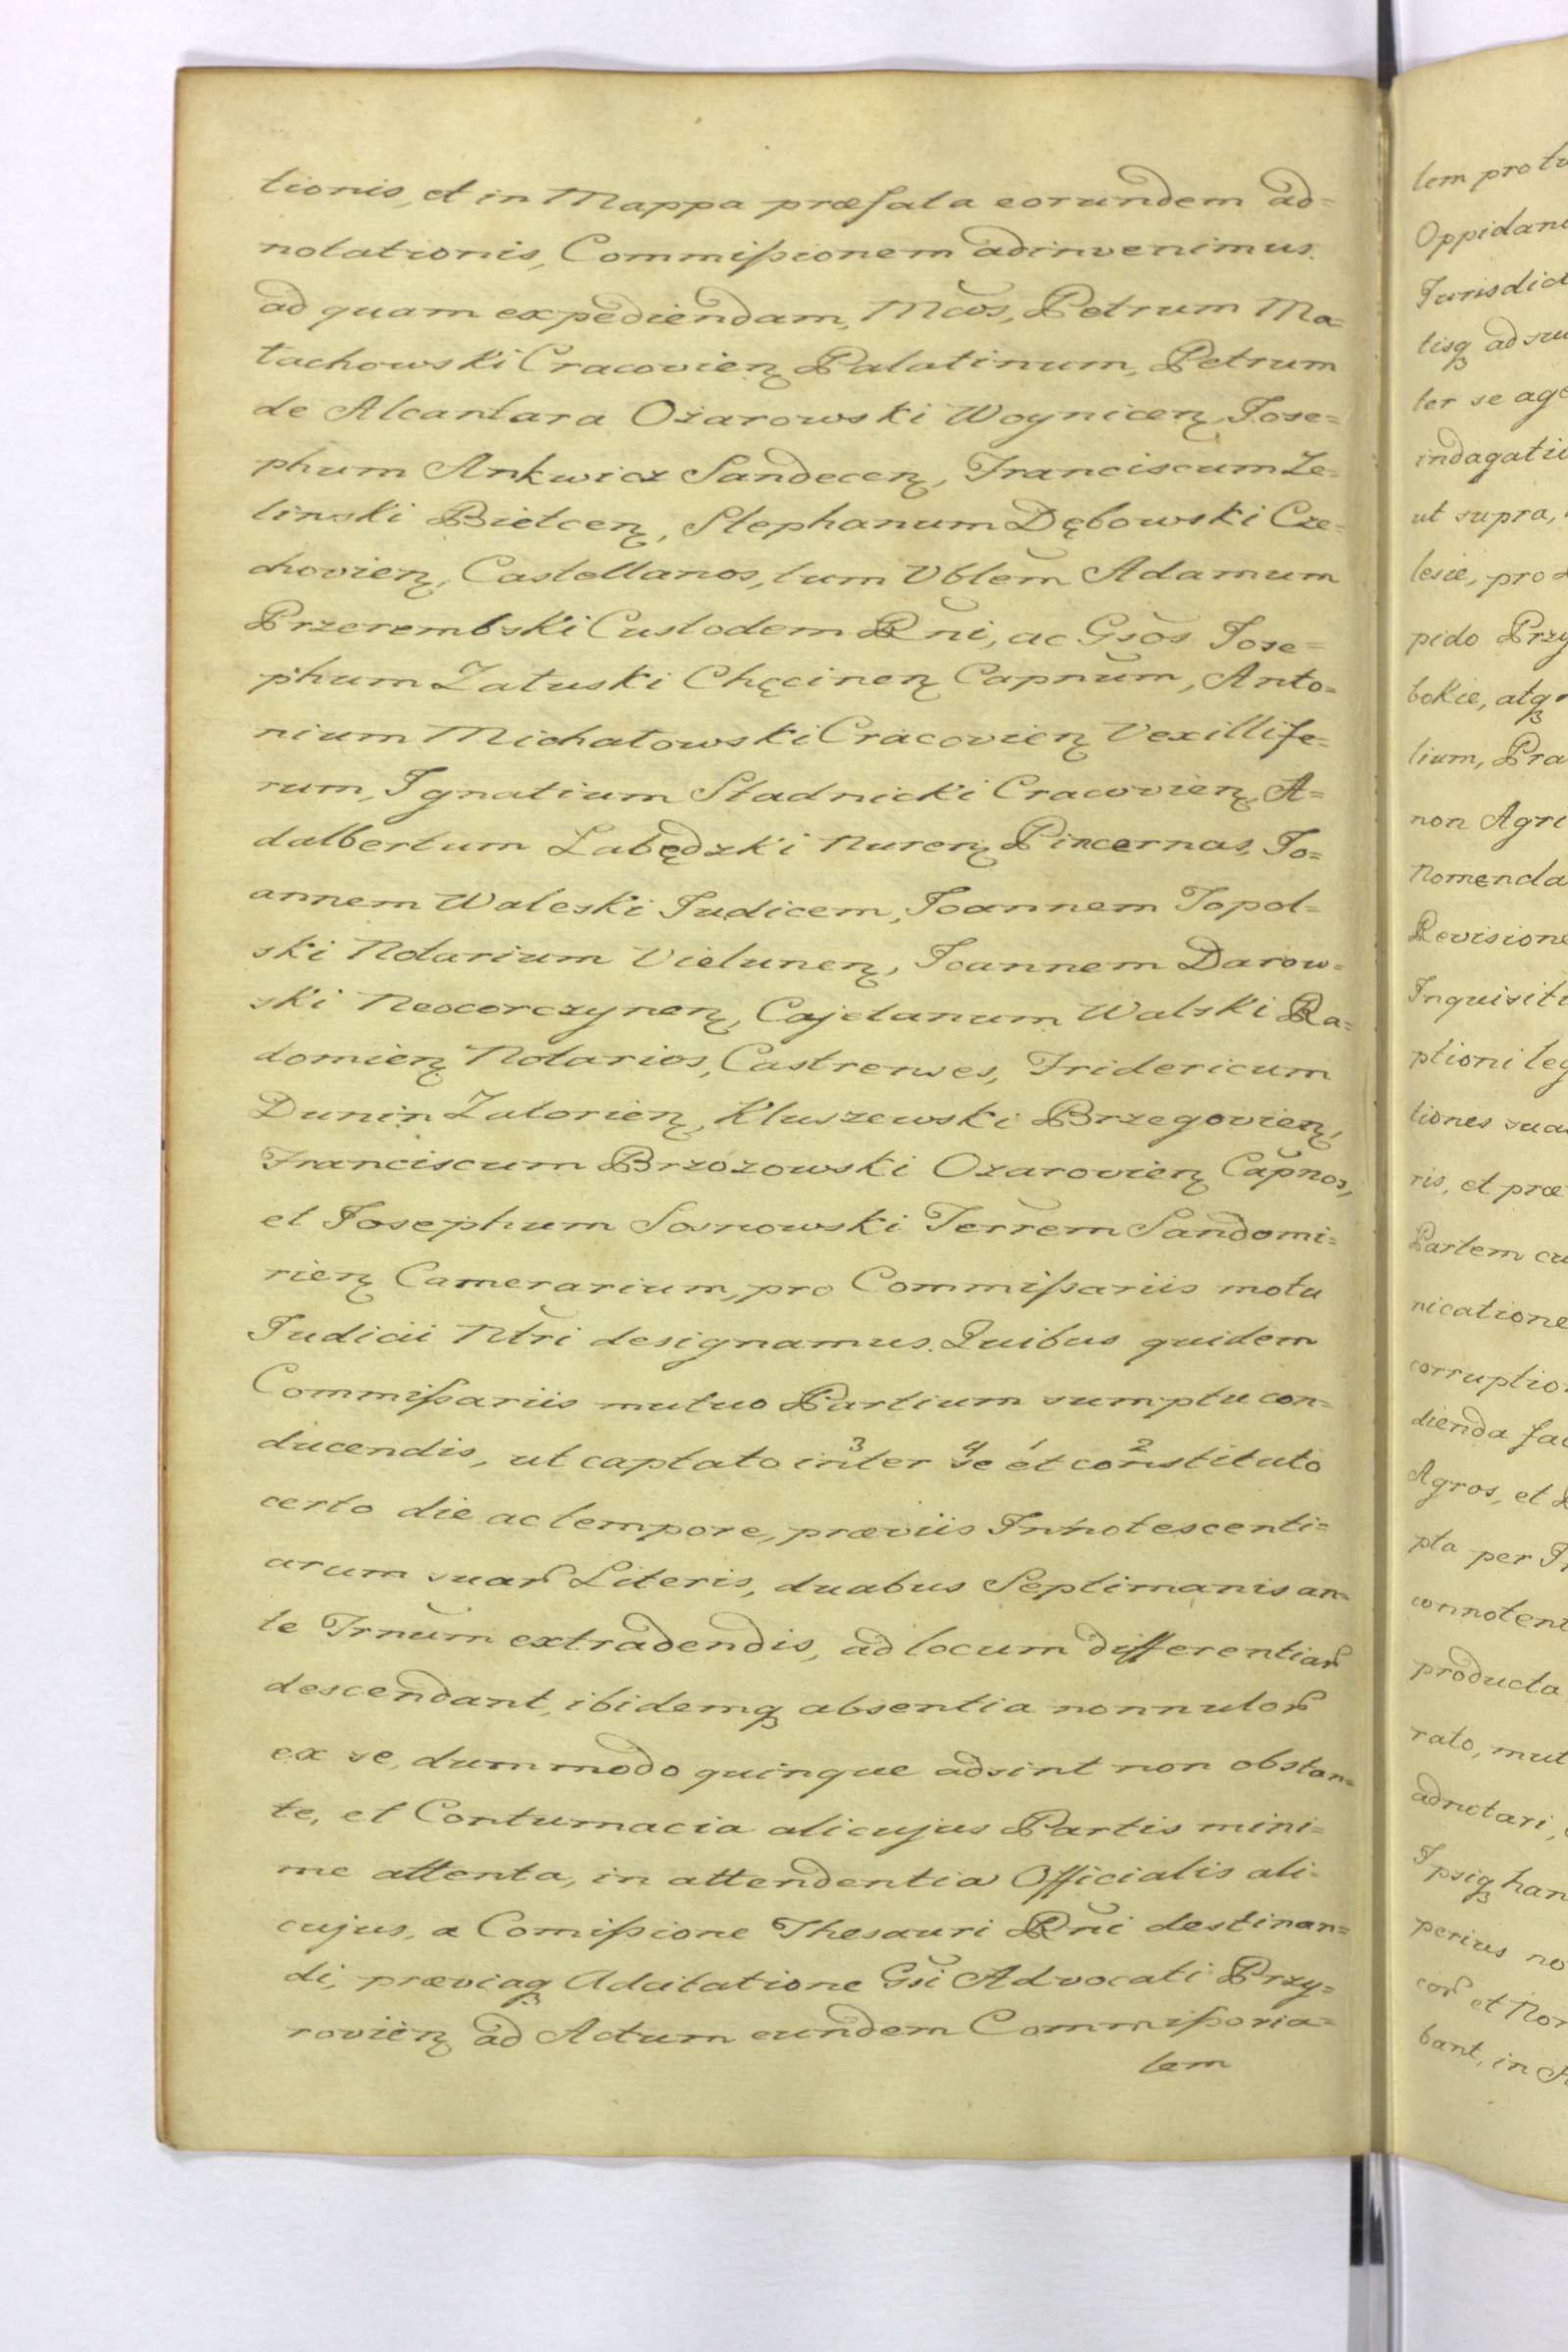 tionis, et in Mappa præfata eorundem ad=
notationis, Commißionem adinvenimus.
ad quam expediendam, Mcos, Petrum Ma=
łachowski Cracovien Palatinum, Petrum
de Alcantara Ożarowski Woynicen, Jose=
phum Ankwicz Sandecen, Franciscum Ze=
linski Bietcen, Stephanum Dębowski Cze=
chovien, Castellanos, tum Vblem Adamum
Przerembski Custodem Rni, ac Gsos Jose=
phum Załuski Chęcinen Capnum, Anto=
nium Michałowski Cracovien Vexillife=
rum, Ignatium Stadnicki Cracovien, A=
dalbertum Łabędzki Nuren Pincernas, Jo=
annem Waleski Judicem, Joannem Topol=
ski Notarium Vielunen, Joannem Darow=
ski Neocorczynen, Cajetanum Walski Ra=
domien Notarios, Castrenses, Fridericum
Dunin Zatorien, Kluszewski Brzegovien,
Franciscum Brzózowski Ożarovien Capnos,
et Josephum Sosnowski Terrem Sandomi=
rien Camerarium, pro Commißariis motu
Judicii Ntri designamus. Quibus quidem
Commißariis mutuo Partium sumptu con=
ducendis, ut captato inter se et constituto
3 4 1 2
certo die ac tempore, præviis Innotescenti=
arum suar Literis, duabus Septimanis an=
te Trnum extradendis, ad locum differentiar
descendant, ibidemq absentia nonnulor
ex se, dummodo quinque adsint non obstan=
te, et Contumacia alicujus Partis mini=
me attenta, in attendentia Officialis ali=
cujus, a Comißione Thesauri Rni destinan=
di, præviaq Adcitatione Gsi Advocati Przy=
rovien ad Actum eundem Commißoria=
lem
lem pro
Oppidan
Jurisdict
tisq ad su
ter se age
indagati
ut supra,
lesie, pro
pido Przy
bokie, atq
lium, Pra
non Agri
Nomencla
Revisione
Inquisiti
ptioni leg
tiones sua
ris, et præ
Partem cu
nicatione
corruptio
dienda fac
Agros, et
pta per
connotent
producta
rato, mut
adnotari,
Ipsiq han
perius no
cor et Nor
bant, in